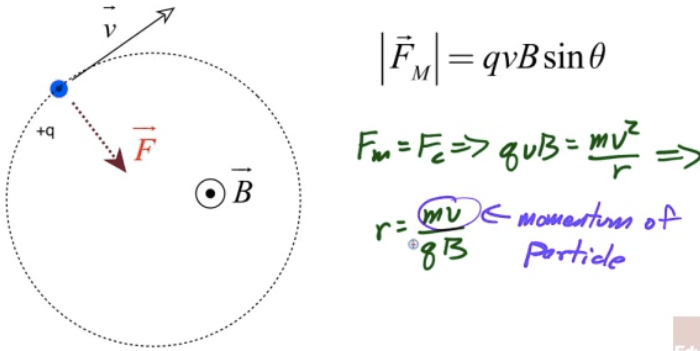 v⃗
+q
F⃗
B⃗
|F⃗_M| = qvB sinθ
F_m = F_c => qvB = mv²/r =>
r = mv/qB ← momentum of
Particle